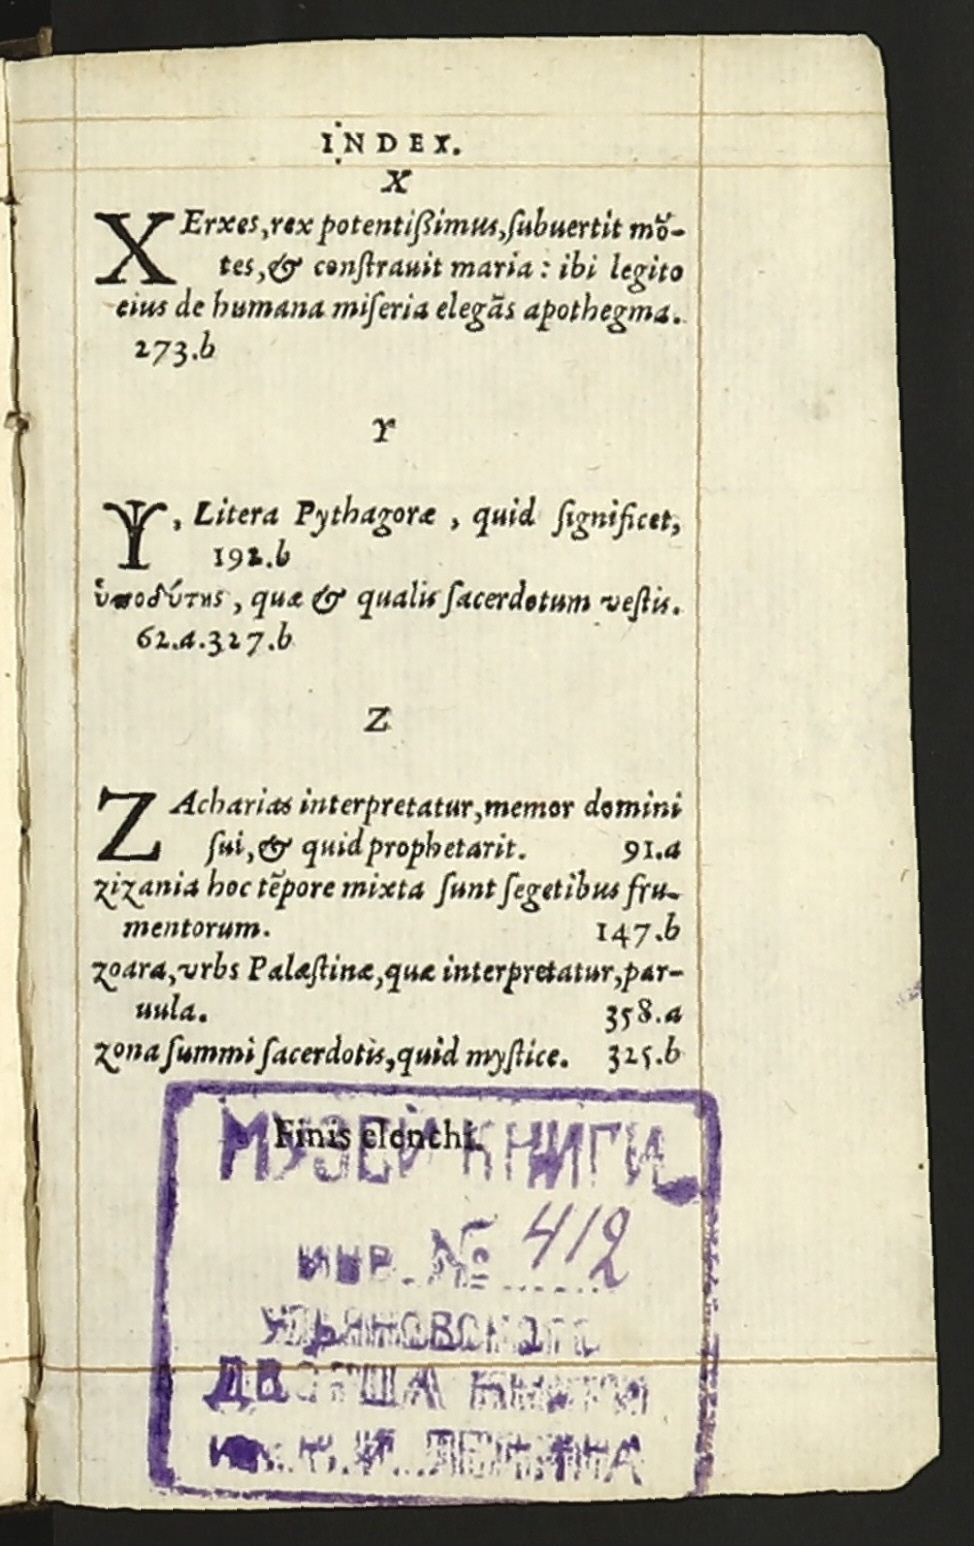 INDEX.
X
XErxes, rex potentißimus, ſubuertit mõ-
tes, & conſtrauit maria : ibi legito
eius de humana miſeria elegãs apothegma.
273.b
Y
Y, Litera Pythagoræ, quid ſignificet,
192.b
ὑποδύτης, quæ & qualis ſacerdotum veſtis.
62.a.327.b
Z
ZAcharias interpretatur, memor domini
ſui, & quid prophetarit. 91.a
zizania hoc tẽpore mixta ſunt ſegetibus fru-
mentorum. 147.b
zoara, vrbs Palæſtinæ, quæ interpretatur, par-
uula. 358.a
zona ſummi ſacerdotis, quid myſtice. 325.b
Finis elenchi.
МУЗЕЙ КНИГИ
инв. № 412
УЛЬЯНОВСКОГО
ДВОРЦА КНИГИ
им. В. И. ЛЕНИНА